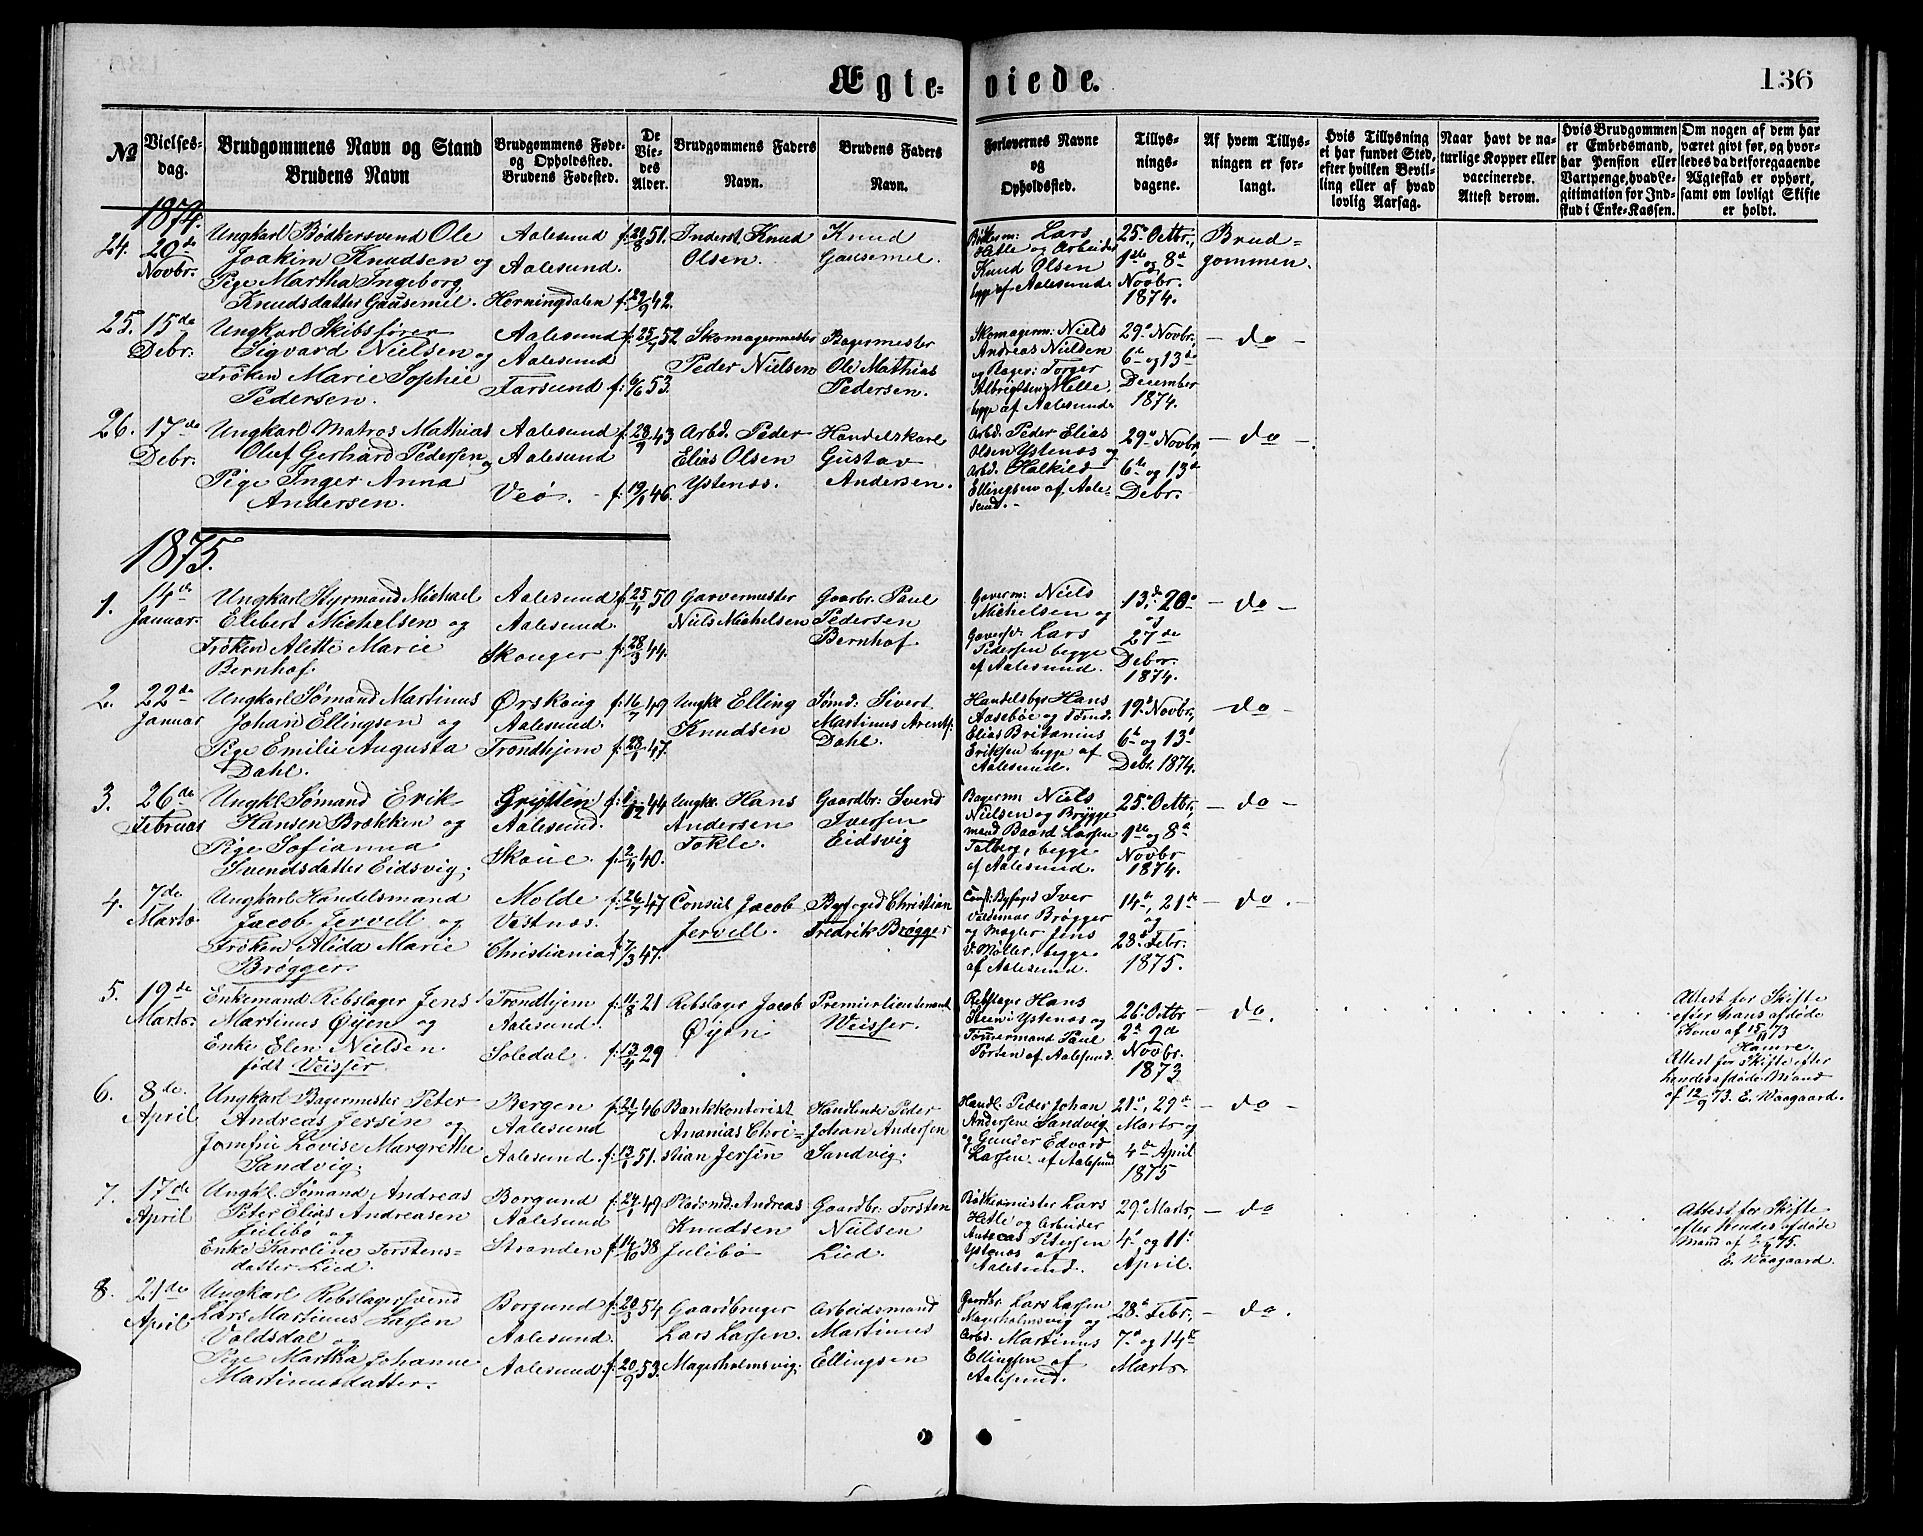 Ægte=
viede.
136
No
Vielses-
dag.
Brudgommens Navn og Stand
Brudens Navn
Brudgommens Føde-
og Opholdssted.
Brudens Fødested.
De
Vie-
des
Alder.
Brudgommens Faders
Navn.
Brudens Faders
Navn.
Forlovernes Navne
og
Opholdssted.
Tillys-
nings-
dagene.
Af hvem Tillys-
ningen er for-
langt.
Hvis Tillysning
ei har fundet Sted,
efter hvilken Bevil-
ling eller af hvad
lovlig Aarsag.
Naar havt de na-
turlige Kopper eller
vaccinerede.
Attest derom.
Hvis Brudgommen
er Embedsmand,
har Pension eller
Vartpenge, hvad Le-
gitimation for Ind-
skud i Enke-Kassen.
Om nogen af dem har
været givt før, og hvor-
ledes da det foregaaende
Ægteskab er ophørt,
samt om lovligt Skifte
er holdt.
1874.
24.
20de
Novbr.
Ungkarl Bødkersvend Ole
Joakim Knudsen og
Pige Martha Ingeborg
Knudsdatter Gausemel.
Aalesund
Aalesund.
Horningdalen
f: 28/8 51.
f: 29/9 42.
Inderst Knud
Olsen.
Knud
Gausemel.
Lars
Hetle og Arbeider
Knud Olsen
begge af Aalesund.
25de Octbr.,
1ste og 8de
Novbr.
1874.
Brud=
gommen.
25.
15de
Debr.
Ungkarl Skibsfører
Sigvard Nielsen og
Frøken Marie Sophie
Pedersen.
Aalesund
Aalesund
Farsund
f: 25/7 52
f: 6/6 53.
Skomagermester
Peder Nielsen
Bagermester
Ole Mathias
Pedersen.
Skomagerm: Niels
Andreas Nielsen
og Bager: Torger
Albrigtsen Helle,
begge af Aalesund.
29de Novbr.,
6te og 13de
December
1874.
— do —
26.
17de
Debr.
Ungkarl Matros Mathias
Oluf Gerhard Pedersen og
Pige Inger Anna
Andersen.
Aalesund
Aalesund
Veø.
f: 28/9 43
f: 19/8 46.
Arbd. Peder
Elias Olsen
Ystenæs.
Handelskarl
Gustav
Andersen.
Arbd. Peder Elias
Olsen Ystenæs og
Arbd. Halkild
Ellingsen af Aale-
sund.
29de Novbr.
6te og 13de
Debr.
— do —
1875.
1.
14de
Januar.
Ungkarl Styrmand Michael
Elibert Michelsen og
Frøken Alette Marie
Bernhof.
Aalesund
Aalesund.
Skouger
f: 25/4 50
f: 28/3 44.
Garvermester
Niels Michelsen
Gaarbr: Paul
Pedersen
Bernhof
Garverm: Niels
Michelsen og
Lars
Pedersen begge
af Aalesund.
13de, 20de
og
27de
Debr.
1874.
— do —
2.
22de
Januar
Ungkarl Sømand Martinus
Johan Ellingsen og
Pige Emilie Augusta
Dahl.
Ørskoug
Aalesund.
Trondhjem
f: 16/7 49
f: 28/1 47.
Ungkl Elling
Knudsen
Sømd: Sivert
Martinus Arentz
Dahl.
Handelsbgr Hans
Aasebøe og Tømd.
Elias Britanius
Eriksen begge af
Aalesund.
19de Novbr.,
6te og 13de
Debr. 1874.
— do —
3.
26de
Februar
Ungkl Sømand Erik
Hansen Brækken og
Pige Sofianna
Svendsdatter Eidsvig.
Grytten
Aalesund.
Skoue.
f: 1/12 44
f: 2/4 40.
Ungkl. Hans
Andersen
Tokle.
Gaardbr: Svend
Iversen
Eidsvig
Bagerm: Niels
Nielsen og Brygge
mand Baard Larsen
Tatberg, begge
af Aalesund.
25de Octbr.,
1ste og 8de
Novbr
1874.
— do —
4.
7de
Marts
Ungkarl Handelsmand
Jacob Jervell og
Frøken Alida Marie
Brøgger.
Molde
Vestnæs.
Christiania
f: 26/7 47
f: 7/3 47.
Consul Jacob
Jervell.
Byfoged Christian
Fredrik Brøgger
Const: Byfoged Iver
Valdemar Brøgger
og Mægler Jens
V. Møller, begge
af Aalesund.
14de, 21de
og
28de Febr.
1875.
— do —
5.
19de
Marts.
Enkemand Rebslager Jens
Martinus Øyen og
Enke Elen Nielsen
født Veisser.
Trondhjem
Aalesund.
Soledal.
f: 11/8 21
f: 13/4 29
Rebslager Jacob
Øyen
Premierlieutenant
Veisser.
Rebslager Hans
Steen: Ystenæs og
Tømmermand Paul
Torsen af Aalesund.
26de Octbr
2de 9de
Novbr.
1873
— do.
Attest for Skifte
efter hans afdøde
Kone af 15/11 73
Hamre.
Attest for Skifte efter
hendes afdøde Mand
af 12/9 73. E. Waagaard.
6.
8de
April
Ungkarl Bagermester Peter
Andreas Jersin og
Jomfru Lovise Margrethe
Sandvig.
Bergen
Aalesund
Aalesund.
f: 21/7 46
f: 13/1 51.
Bankkontorist
Ananias Chri-
stian Jersin
Handlende Peder
Johan Andersen
Sandvig.
Handl. Peder Johan
Andersen Sandvig
og Gunder Edvard
Larsen af Aalesund
21de, 29de
Marts og
4de April
1875
— do —
7.
17de
April
Ungkl. Sømand Andreas
Peter Elias Andreasen
Julibø og
Enke Karoline Torstens-
datter Lied.
Borgund
Aalesund
Stranden
f: 24/1 49
f: 14/10 38
Pladsmd. Andreas
Knudsen
Julibø
Gaardbr: Torsten
Nielsen
Lied.
Bødkermester Lars
Hetle og Arbeider
Andreas Petersen
Ystenæs af
Aalesund.
29de Marts,
4de og 11de
April.
— do
Attest for Skifte
efter hendes afdøde
Mand af 2/4 75.
E. Waagaard.
8.
21de
April
Ungkarl Rebslagersvend
Lars Martinus Larsen
Valdsdal og
Pige Martha Johanne
Martinusdatter.
Borgund
Aalesund.
Aalesund.
f: 20/3 54
f: 20/9 53.
Gaardbruger
Lars Larsen.
Magerholmsvig.
Arbeidsmand
Martinus
Ellingsen
Gaardbr. Lars Larsen
Magerholmsvig og
Arbd. Martinus
Ellingsen af
Aalesund.
28de Febr.,
7de og 14de
Marts.
— do.